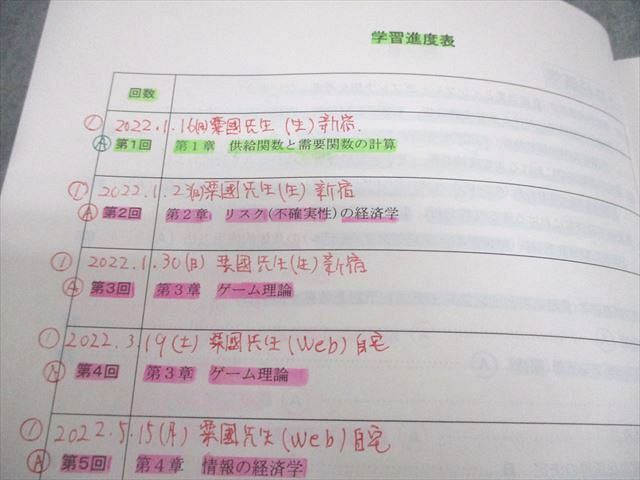 学習進度表
回数
① 2022.1.16(日)粟國先生 (生) 新宿.
Ⓐ 第1回 第1章 供給関数と需要関数の計算
① 2022.1.23(日)粟國先生(生) 新宿
Ⓐ 第2回 第2章 リスク(不確実性)の経済学
① 2022.1.30(日) 粟國先生(生)新宿
Ⓐ 第3回 第3章 ゲーム理論
① 2022.3.19(土) 粟國先生(Web) 自宅
Ⓐ 第4回 第3章 ゲーム理論
① 2022.5.15(月) 粟國先生(Web)自宅
Ⓐ 第5回 第4章 情報の経済学